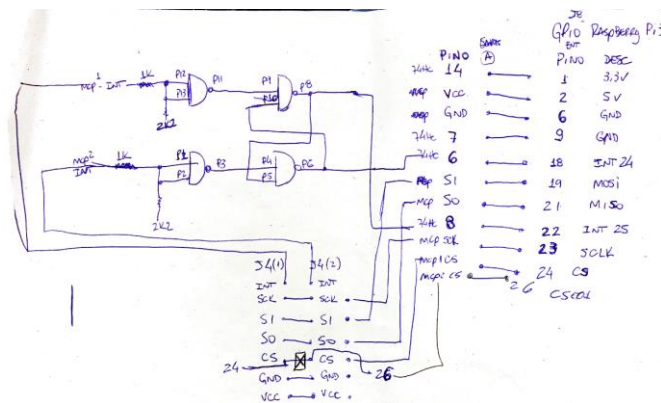 J8
GPIO RASPBERRY Pi3
PINO
PINO DESC
74HC 14 1 3,3V
VCC 2 5V
GND 6 GND
74HC 7 9 GND
74HC 6 18 INT 24
MCP SI 19 MOSI
MCP SO 21 MISO
74HC 8 22 INT 25
MCP SCK 23 SCLK
MCP1 CS 24 CS
MCP2 CS 26 CSCE1
MCP1-INT 1K P12 P11 P9 P8
P13 P10
2K2
MCP2 INT 1K P1 P3 P4 P6
P2 P5
2K2
J4(1) J4(2)
INT INT
SCK SCK
SI SI
SO SO
24 CS CS 26
GND GND
VCC VCC